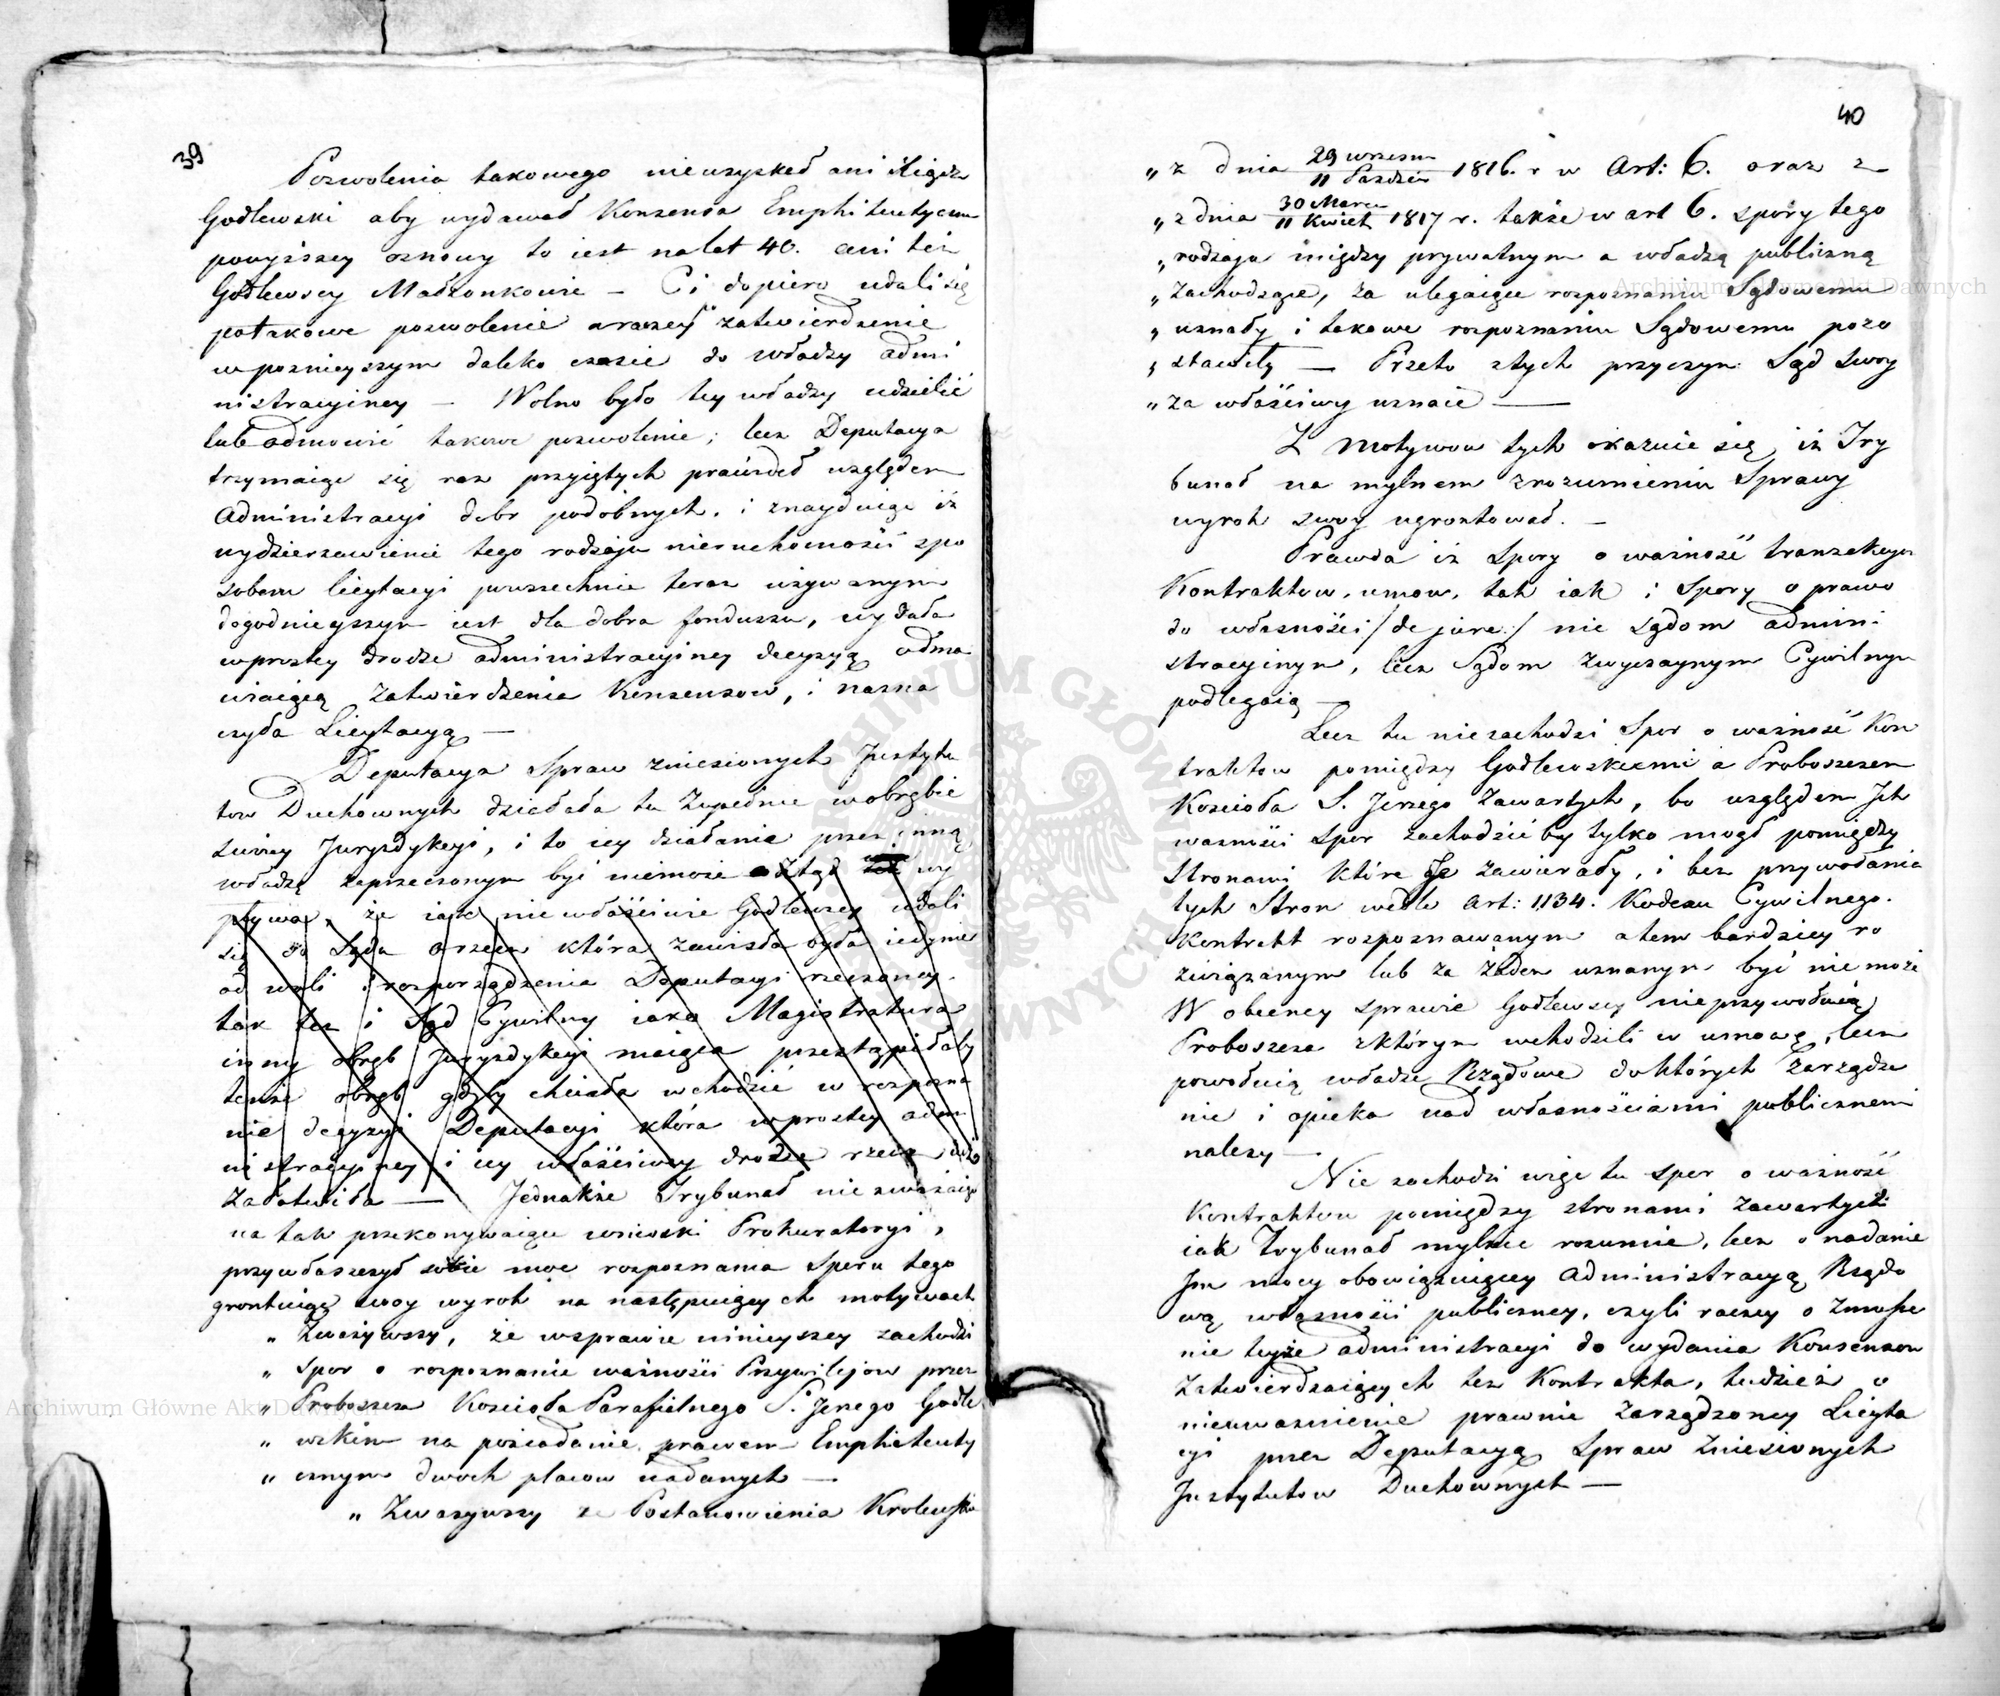 39
Pozwolenia takowego nieuzyskał ani Xiądz
Godlewski aby wydawał Konsensa Emphiteutyczne
powyższey osnowy to iest na lat 40. ani też
Godlewscy Małżonkowie — Ci dopiero udali się
po takowe pozwolenie a raczey zatwierdzenie
w poznieyszym daleko czasie do władzy admi
nistracyiney — Wolno było tey władzy udzielić
lub odmowić takowe pozwolenie; lecz Deputacya
trzymaiąc się raz przyiętych prawideł względem
Administracyi dobr podobnych, i znayduiąc iż
wydzierzawienie tego rodzaju nieruchomości spo
sobem licytacyi powszechnie teraz używanym
dogodnieyszym iest dla dobra funduszu, wydała
w prostey drodze administracyiney decyzyą odma
wiaiącą zatwierdzenia Konsensow, i nazna
czyła Licytacyą —
Deputacya Spraw zniesionych Justytu
tow Duchownych działała tu zupełnie w obrębie
swoiey Jurysdykcyi, i to iey działanie przez inną
władzę zaprzeczonym być niemoże Ztąd wy
pływa, że iak niewłaściwie Godlewscy udali
się do Sądu o rzecz która zawisła była iedynie
od woli i rozporządzenia Deputacyi rzeczoney.
tak też i Sąd Cywilny iako Magistratura
inny obręb jurysdykcyi maiąca przestąpiłaby
tenże obręb gdyby chciała wchodzić w rozpozna
nie decyzyi Deputacyi która w prostey admi
nistracyiney i iey właściwey drodze rzecz
załatwiła — Jednakże Trybunał niezważaiąc
na tak przekonywaiące wnioski Prokuratoryi,
przywłaszczył sobie moc rozpoznania Sporu tego
gruntuiąc swoy wyrok na następuiących motywach
„ Zważywszy, że w sprawie ninieyszey zachodzi
„ spor o rozpoznanie ważności Przywilejow przez
„ Proboszcza Koscioła Parafielnego S. Jerzego Godle
„ wskim na posiadanie prawem Emphiteuty
„ cznym dwoch placow nadanych —
„ Zważywszy że Postanowienia Krolewskie
40
„ z dnia 29 wrzesn / 11 Pazdzier 1816. r w Art: 6. oraz z
„ z dnia 30 Marca / 11 Kwiet 1817 r. także w art 6. spory tego
„ rodzaju między prywatnym a władzą publiczną
„ zachodzące, za ulegaiące rozpoznaniu Sądowemu
„ uznały i takowe rozpoznaniu Sądowemu pozo
„ stawiły — Przeto z tych przyczyn Sąd swoy
„ za właściwy uznaie —
Z Motywow tych okazuie się, iż Try
bunał na mylnem zrozumieniu Sprawy
wyrok swoy ugruntował. —
Prawda iż spory o ważność tranzakcyi
Kontraktow, umow, tak iak i Spory o prawo
do własności /:de jure:/ nie sądom admini-
stracyinym, lecz Sądom zwyczaynym Cywilnym
podlegaią —
Lecz tu niezachodzi Spor o ważność Kon
traktow pomiędzy Godlewskiemi a Proboszczem
Koscioła S. Jerzego zawartych, bo względem Jch
ważności spor zachodzić by tylko mogł pomiędzy
Stronami które Je zawierały, i bez przywołania
tych Stron wedle Art: 1,134. Kodexu Cywilnego.
Kontrakt rozpoznawanym a tem bardziey ro
związanym lub za żaden uznanym być niemoże
W obecney sprawie Godlewscy nieprzywołuią
Proboszcza z którym wchodzili w umowę, lecz
powołuią władze Rządowe do których zarządze
nie i opieka nad własnościami publicznemi
należy —
Nie zachodzi więc tu spor o ważność
Kontraktow pomiędzy stronami zawartych
iak Trybunał mylnie rozumie, lecz o nadanie
Jm mocy obowiązuiącey Administracyą Rządo
wą własności publiczney, czyli raczey o zmusze
nie teyże administracyi do wydania Konsensow
zatwierdzaiących też Kontrakta, tudzież o
nieuważnienie prawnie zarządzoney Licyta
cyi przez Deputacyą Spraw Zniesionych
Justytutow Duchownych —
Archiwum Główne Akt Dawnych
Archiwum Główne Akt Dawnych
ARCHIWUM GŁÓWNE AKT DAWNYCH